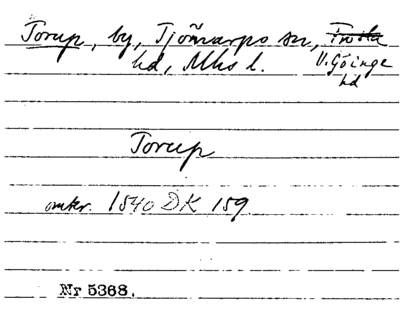 Torup, by, Tjörnarps sn, Frosta
hd, Mhs l. V. Göinge
hd
Torup
omkr. 1540 DK 159
Nr 5368.